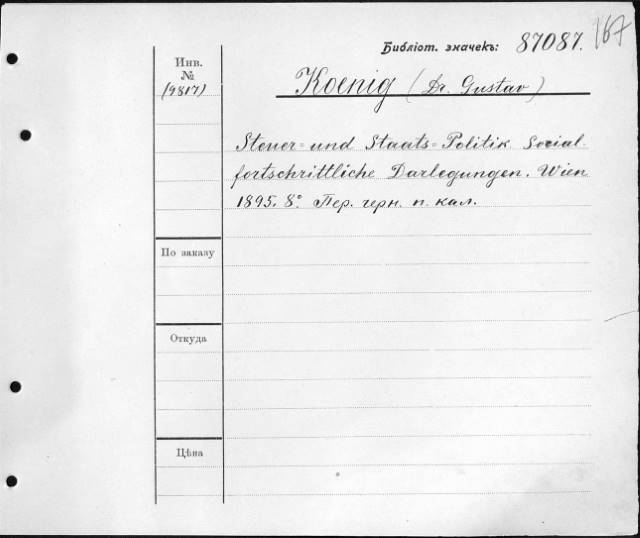 Библіот. значекъ: 87087. 167
Инв.
№
(9817)
Koenig (Dr. Gustav)
Steuer- und Staats-Politik Social-
fortschrittliche Darlegungen. Wien
1895. 8° Пер. черн. п. кал.
По заказу
Откуда
Цѣна